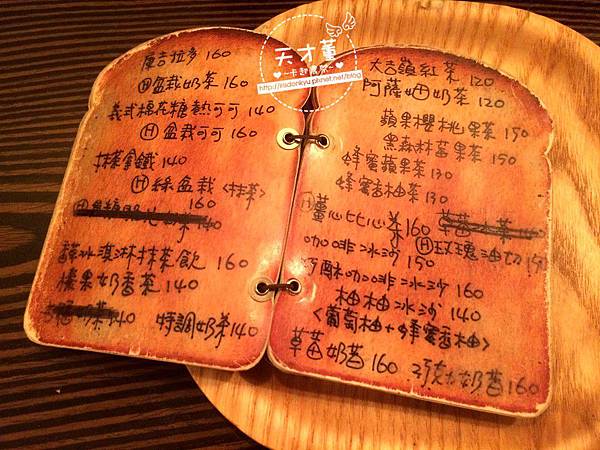 唐吉拉多 160
Ⓗ盆栽奶茶 160
義式棉花糖熱可可 140
Ⓗ 盆栽可可 160
抹茶拿鐵 140
Ⓗ 綠盆栽 <抹茶> 160
140
冰淇淋抹茶飲 160
榛果奶香茶 140
140 特調奶茶 140
天才董
~卡起恩尤~
http://irisdonkyu.pixnet.net/blog
大吉嶺紅茶 120
阿薩姆奶茶 120
蘋果櫻桃果茶 150
黑森林莓果茶 150
蜂蜜蘋果茶 130
蜂蜜香柚茶 130
Ⓗ薑心比心茶 160 草莓冰茶 140
咖啡冰沙 150 Ⓗ玫瑰油切 150
巧酥咖啡冰沙 160
柚柚冰沙 140
<葡萄柚+蜂蜜香柚>
草莓奶昔 160 巧克力奶昔 160